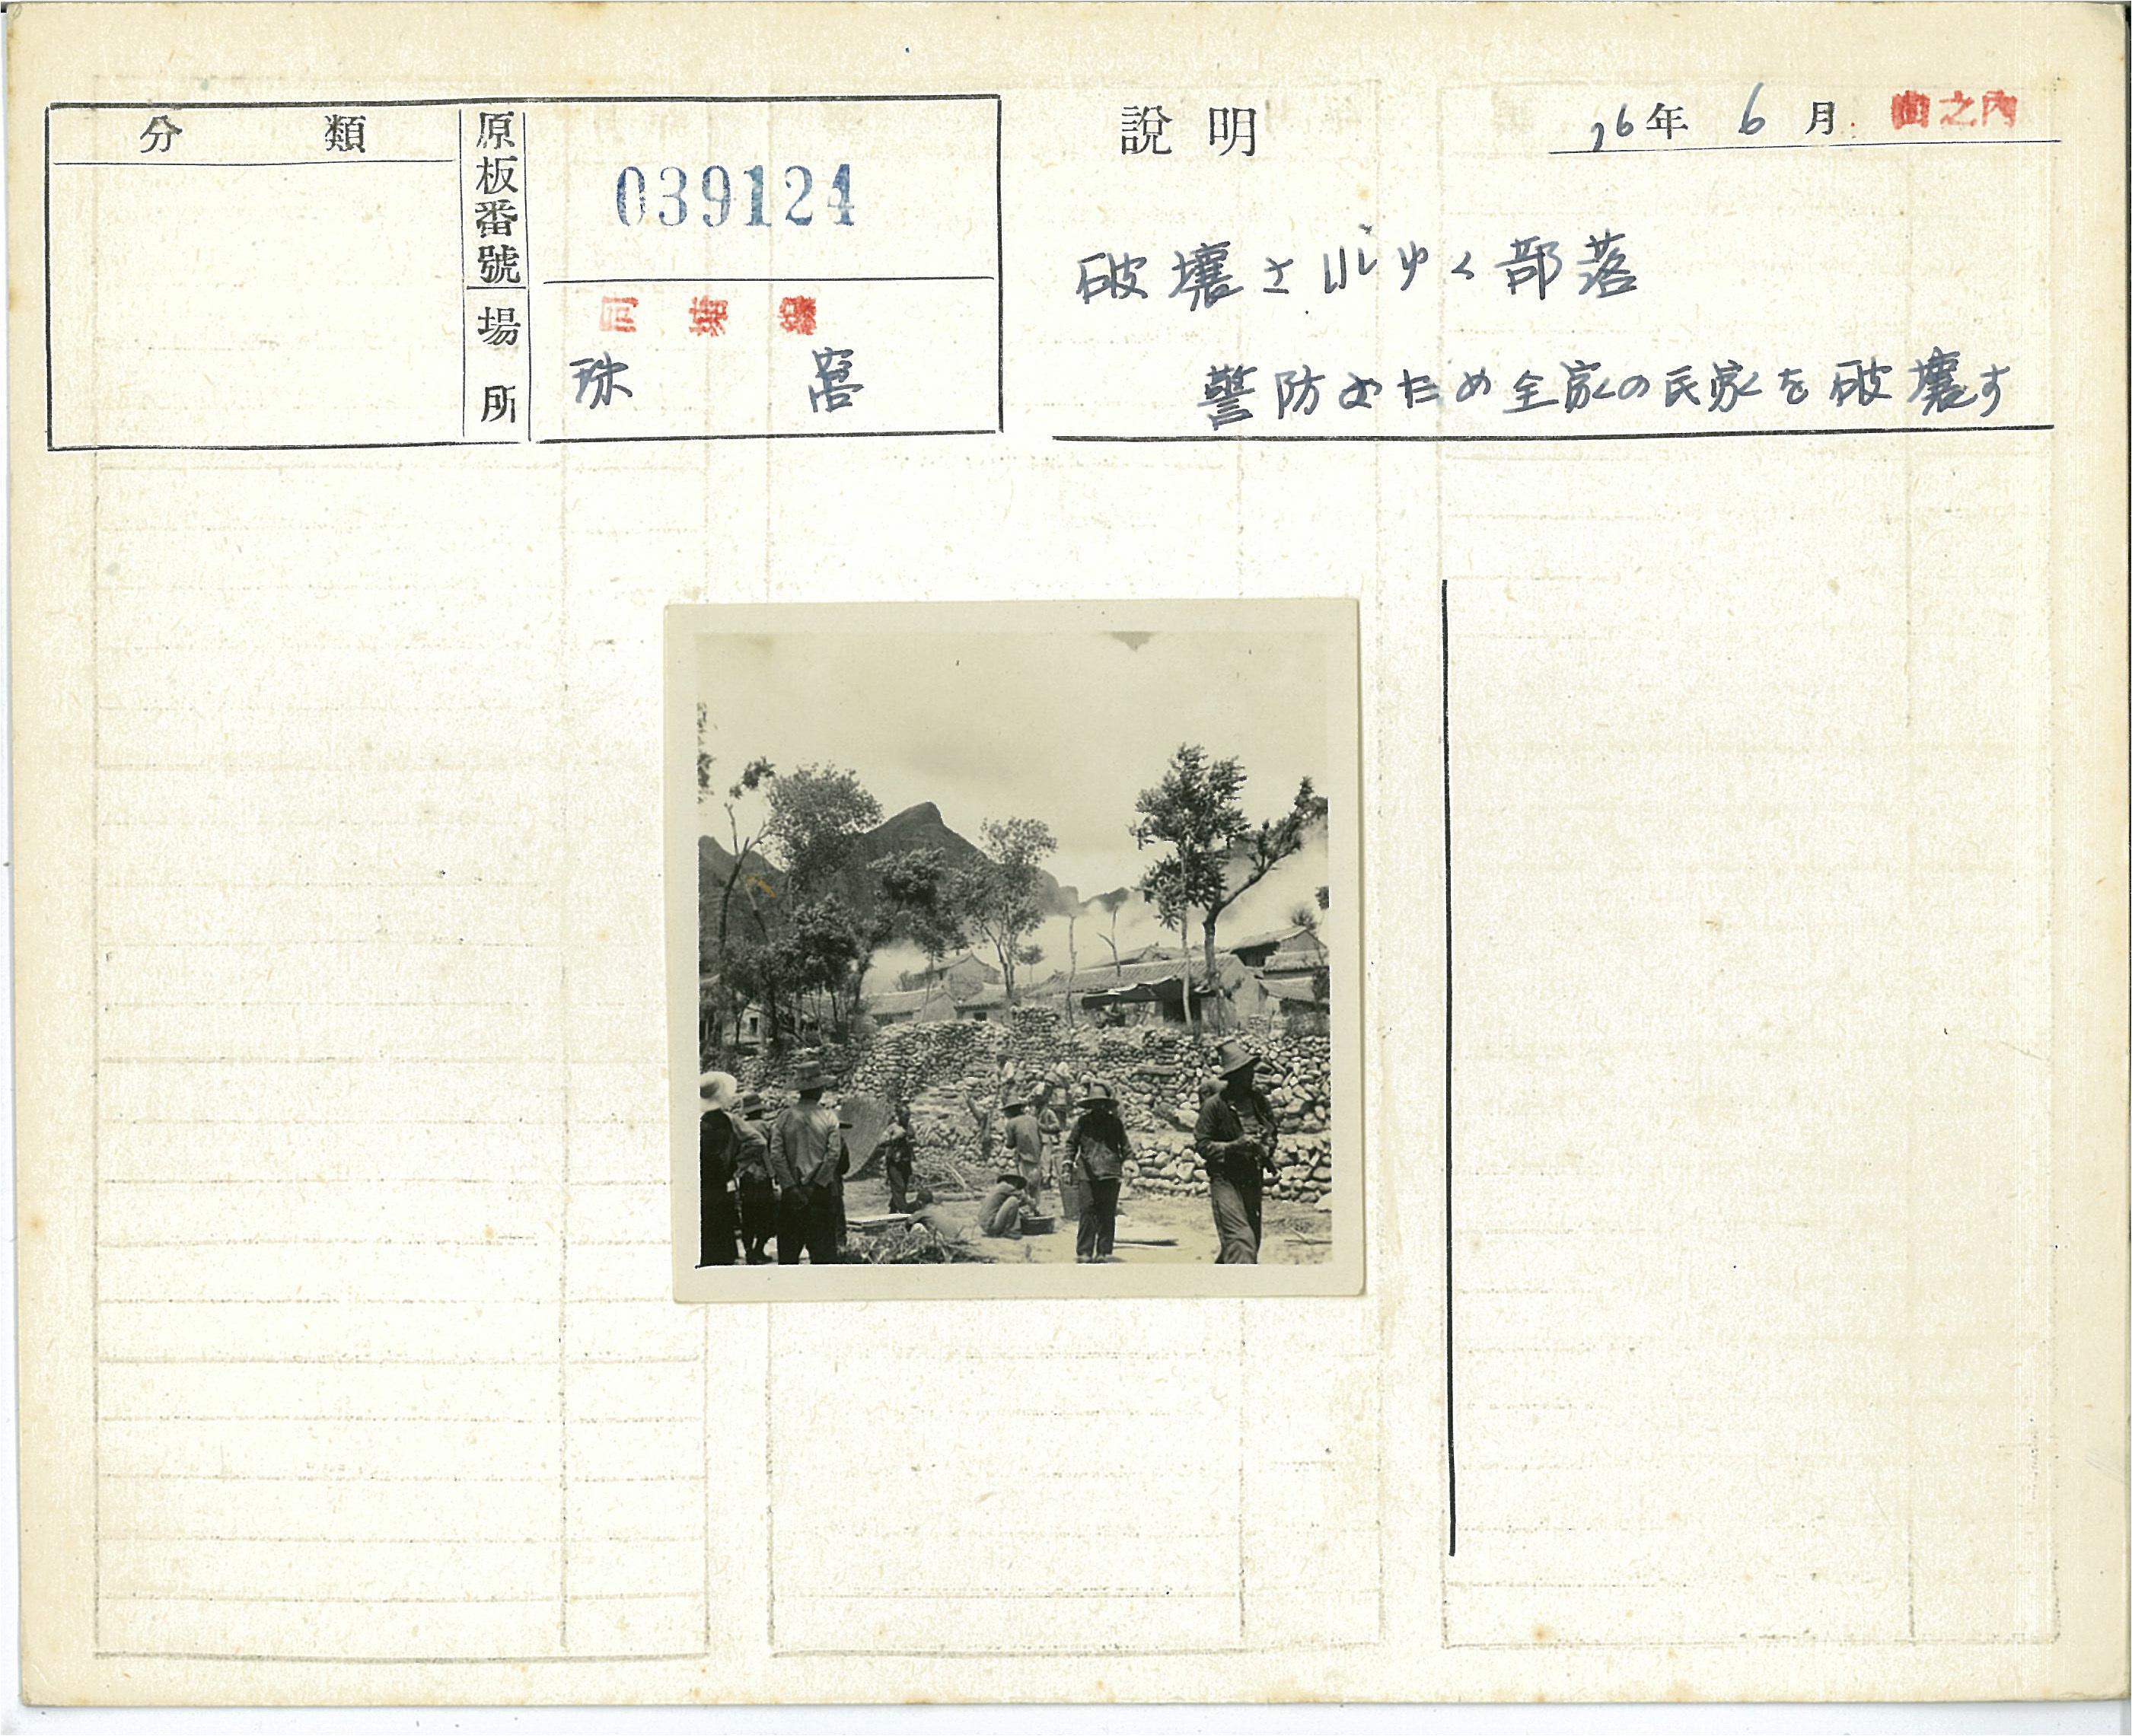 分類
原板番號
039124
場所
珠窩
說明
16年6月
山之内
破壊さればゆく部落
警防のため全家の民家を破壊す